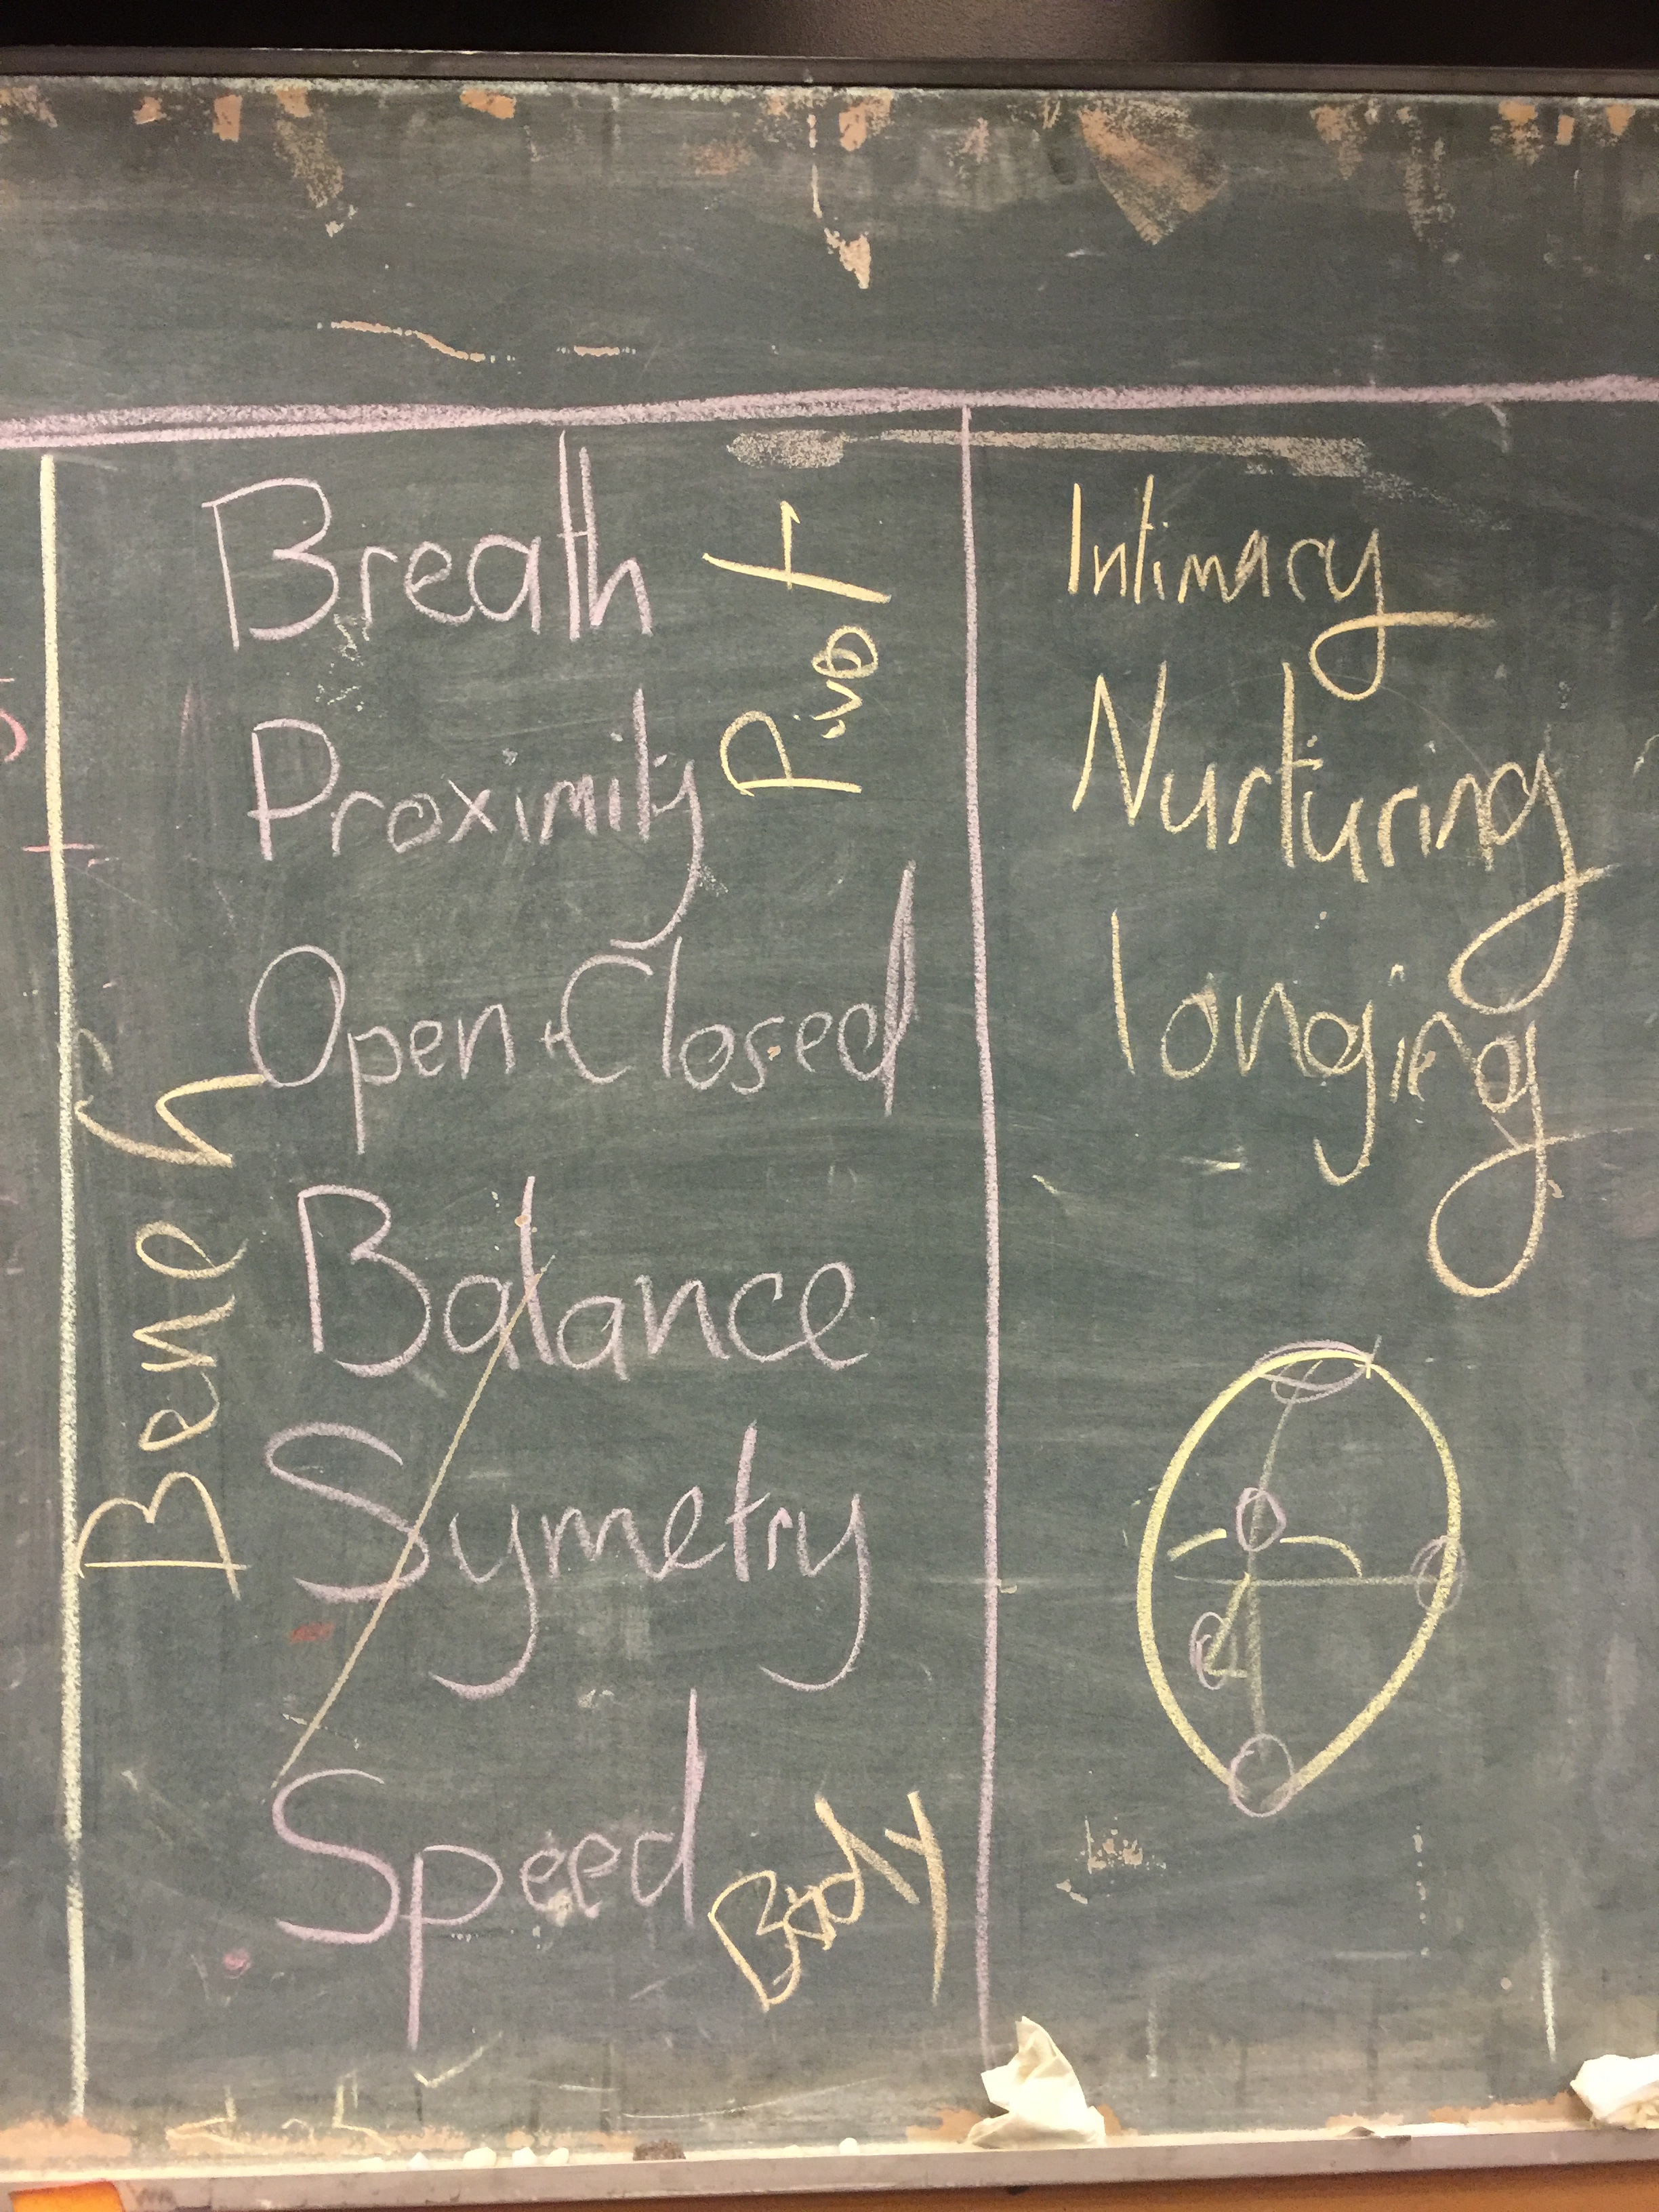 Breath
Pivot
Proximity
Open + Closed
Balance
Symetry
Speed
Body
Intimacy
Nurturing
longing